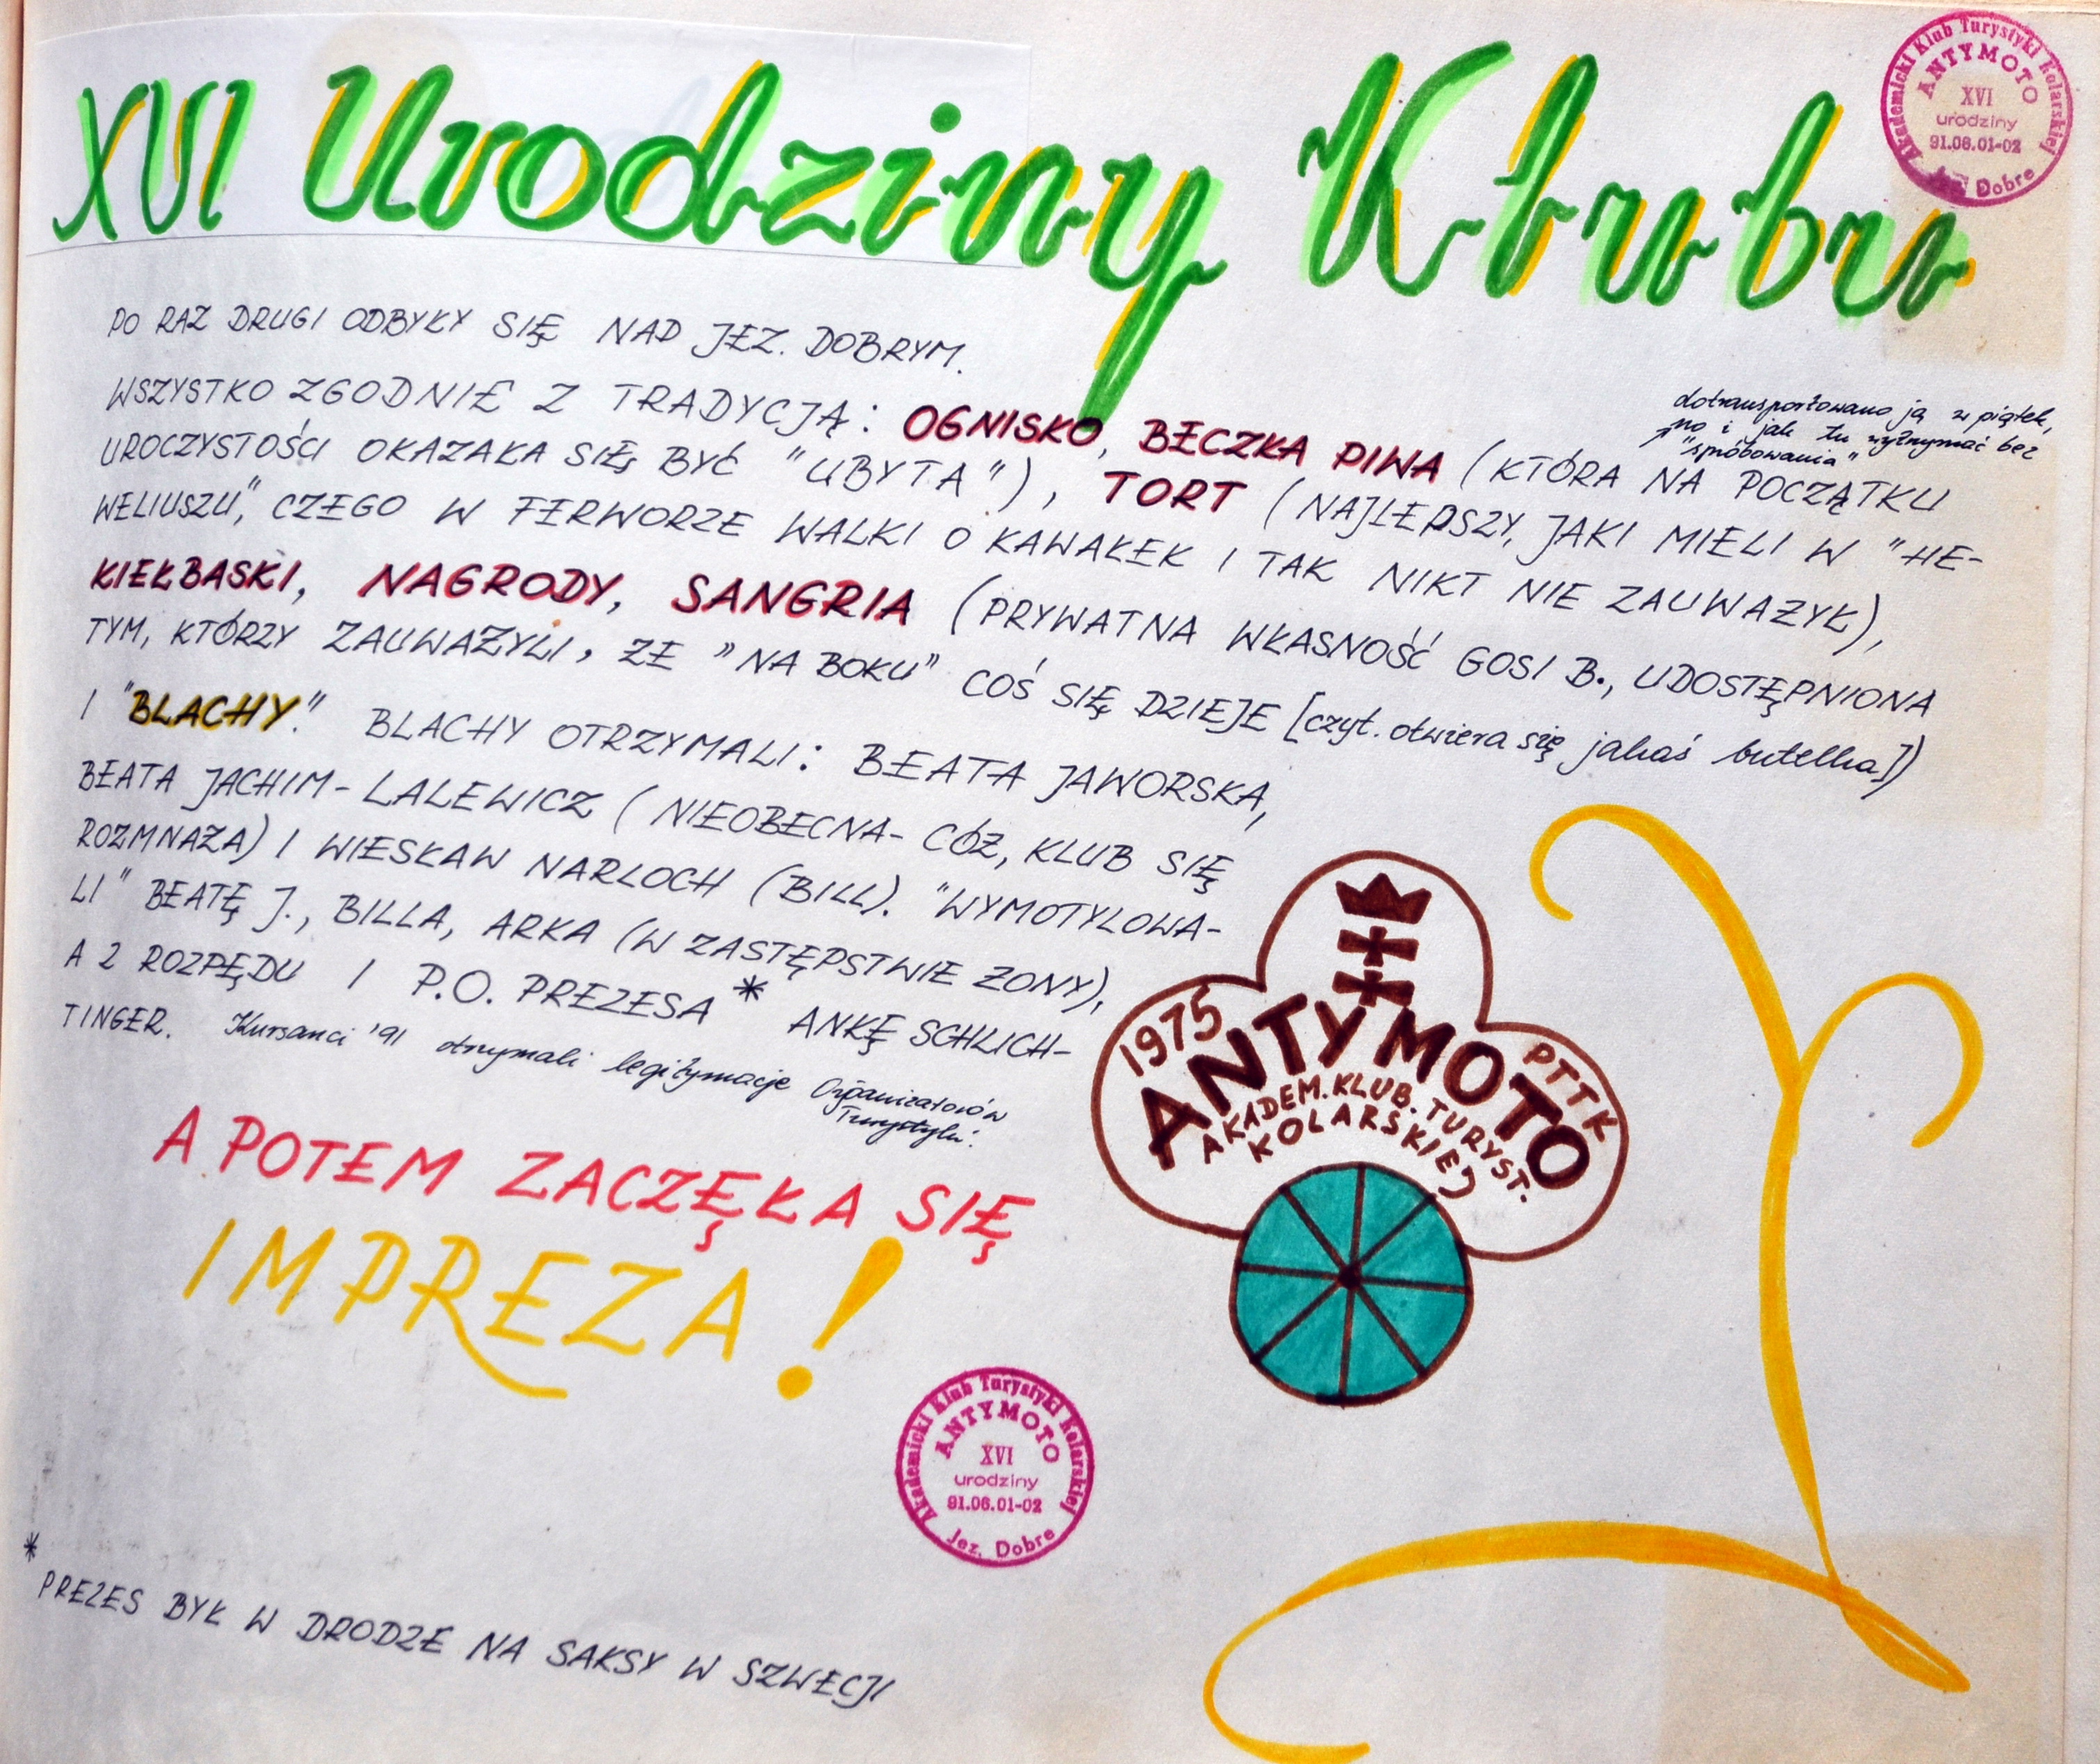 XVI Urodziny Klubu
Akademicki Klub Turystyki Kolarskiej
ANTYMOTO
XVI
urodziny
91.06.01-02
Jez. Dobre
PO RAZ DRUGI ODBYŁY SIĘ NAD JEZ. DOBRYM.
WSZYSTKO ZGODNIE Z TRADYCJĄ: OGNISKO, BECZKA PIWA (KTÓRA NA POCZĄTKU
dotransportowano ją w piątek,
no i jak tu wytrzymać bez
"spróbowania"
UROCZYSTOŚCI OKAZAŁA SIĘ BYĆ "UBYTA"), TORT (NAJLEPSZY, JAKI MIELI W "HE-
WELIUSZU", CZEGO W FERWORZE WALKI O KAWAŁEK I TAK NIKT NIE ZAUWAŻYŁ),
KIEŁBASKI, NAGRODY, SANGRIA (PRYWATNA WŁASNOŚĆ GOSI B., UDOSTĘPNIONA
TYM, KTÓRZY ZAUWAŻYLI, ŻE "NA BOKU" COŚ SIĘ DZIEJE [czyt. otwiera się jakaś butelka])
I "BLACHY". BLACHY OTRZYMALI: BEATA JAWORSKA,
BEATA JACHIM-LALEWICZ (NIEOBECNA- CÓŻ, KLUB SIĘ
ROZMNAŻA) I WIESŁAW NARLOCH (BILL). "WYMOTYLOWA-
LI" BEATĘ J., BILLA, ARKA (W ZASTĘPSTWIE ŻONY),
A Z ROZPĘDU I P.O. PREZESA* ANKĘ SCHLICH-
TINGER. Kursanci '91 otrzymali legitymacje Organizatorów
Turystyki.
A POTEM ZACZĘŁA SIĘ
IMPREZA!
1975
ANTYMOTO
PTTK
AKADEM. KLUB. TURYST.
KOLARSKIEJ
Akademicki Klub Turystyki Kolarskiej
ANTYMOTO
XVI
urodziny
91.06.01-02
Jez. Dobre
*
PREZES BYŁ W DRODZE NA SAKSY W SZWECJI